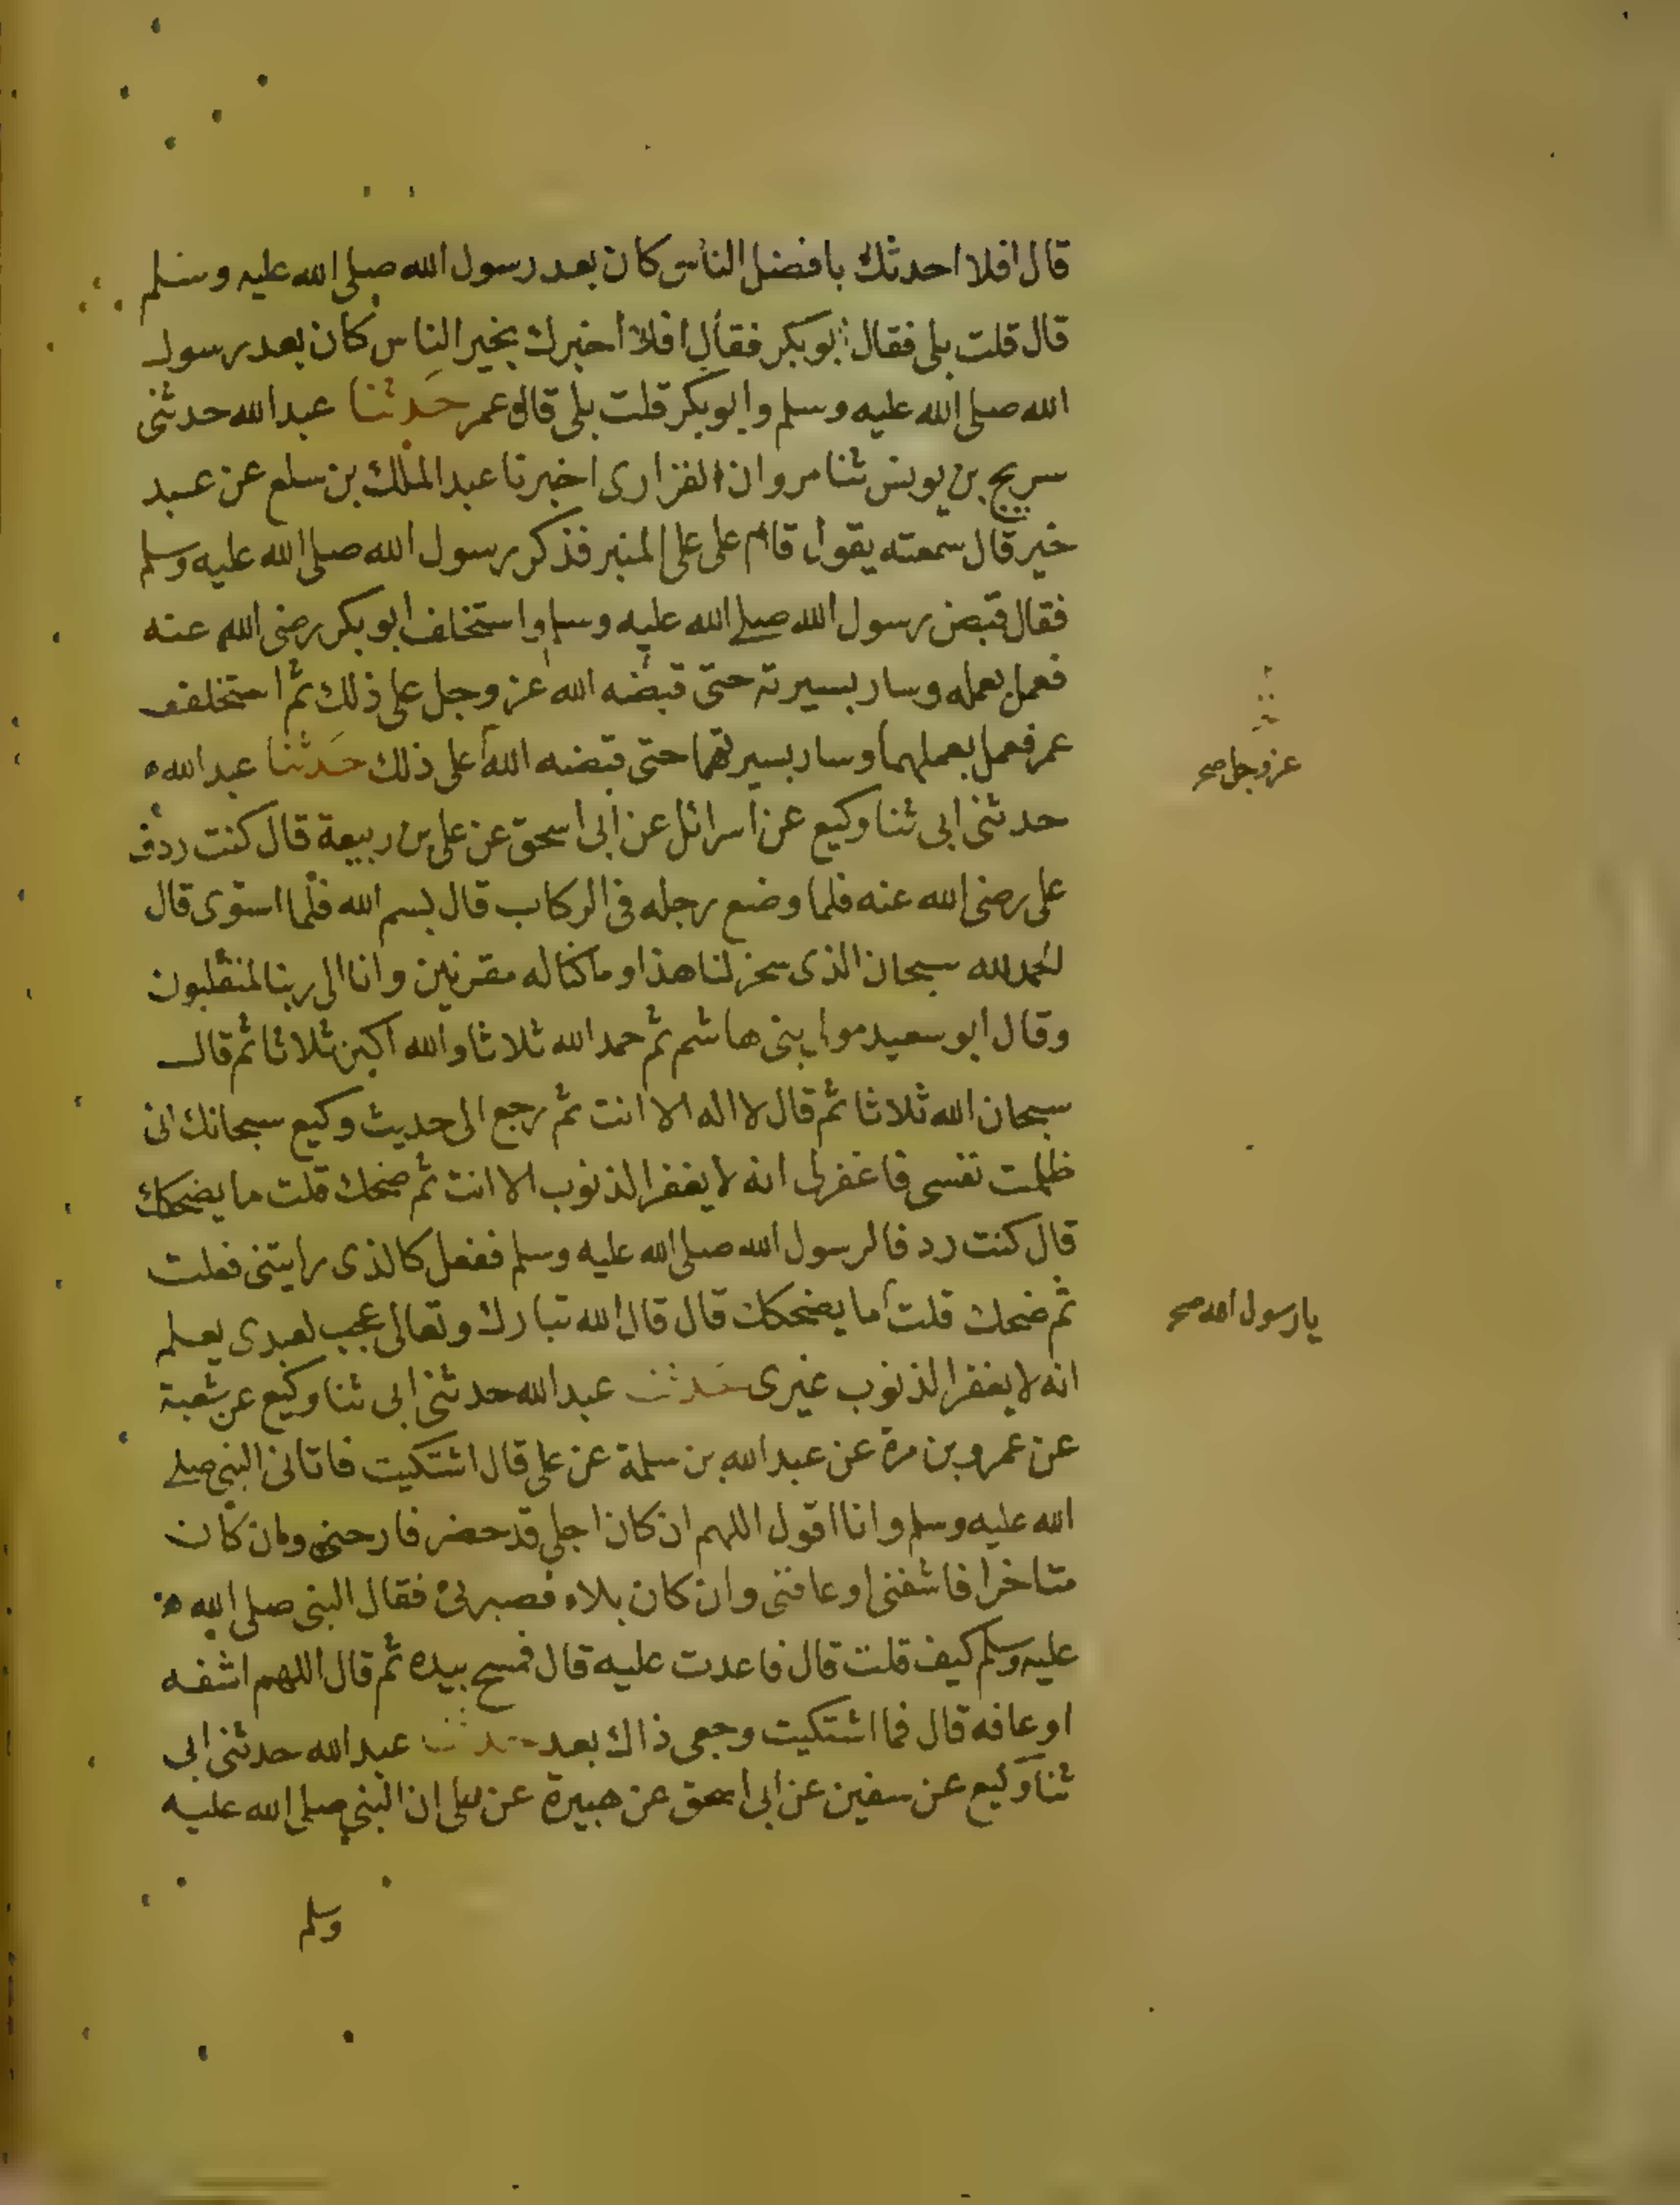 قال افلا احدثك بافضل الناس كان بعد رسول الله صلى الله عليه وسلم
قال قلت بلى فقال ابو بكر فقال افلا اخبرك بخير الناس كان بعد رسول
الله صلى الله عليه وسلم وابو بكر قلت بلى قال عمر حدثنا عبد الله حدثنى
سريج بن يونس ثنا مروان الفزارى اخبرنا عبد الملك بن سلع عن عبد
خير قال سمعته يقول قام على على المنبر فذكر رسول الله صلى الله عليه وسلم
فقال قبض رسول الله صلى الله عليه وسلم واستخلف ابو بكر رضى الله عنه
فعمل بعمله وسار بسيرته حتى قبضه الله عز وجل على ذلك ثم استخلف
عمر فعمل بعملهما وسار بسيرتهما حتى قبضه الله على ذلك حدثنا عبد الله
عز وجل صح
حدثنى ابى ثنا وكيع عن اسرائل عن ابى اسحق عن على بن ربيعة قال كنت ردف
على رضى الله عنه فلما وضع رجله فى الركاب قال بسم الله فلما استوى قال
الحمد لله سبحان الذى سخر لنا هذا وما كنا له مقرنين وانا الى ربنا لمنقلبون
وقال ابو سعيد مولى بنى هاشم ثم حمد الله ثلاثا والله اكبر ثلاثا ثم قال
سبحان الله ثلاثا ثم قال لا اله الا انت ثم رجع الى حديث وكيع سبحانك انى
ظلمت نفسى فاغفر لى انه لا يغفر الذنوب الا انت ثم ضحك قلت ما يضحكك
قال كنت ردفا لرسول الله صلى الله عليه وسلم ففعل كالذى رايتنى فعلت
ثم ضحك قلت ما يضحكك قال قال الله تبارك وتعالى عجب لعبدى يعلم
يا رسول الله صح
انه لا يغفر الذنوب غيرى حدثنا عبد الله حدثنى ابى ثنا وكيع عن شعبة
عن عمرو بن مرة عن عبد الله بن سلمة عن على قال اشتكيت فاتانى النبى صلى
الله عليه وسلم وانا اقول اللهم ان كان اجلى قد حضر فارحنى وان كان
متاخرا فاشفنى او عافنى وان كان بلاء فصبرنى فقال النبى صلى الله
عليه وسلم كيف قلت قال فاعدت عليه قال فمسح بيده ثم قال اللهم اشفه
او عافه قال فما اشتكيت وجعى ذاك بعد حدثنا عبد الله حدثنى ابى
ثنا وكيع عن سفين عن ابى اسحق عن هبيرة عن على ان النبى صلى الله عليه
وسلم